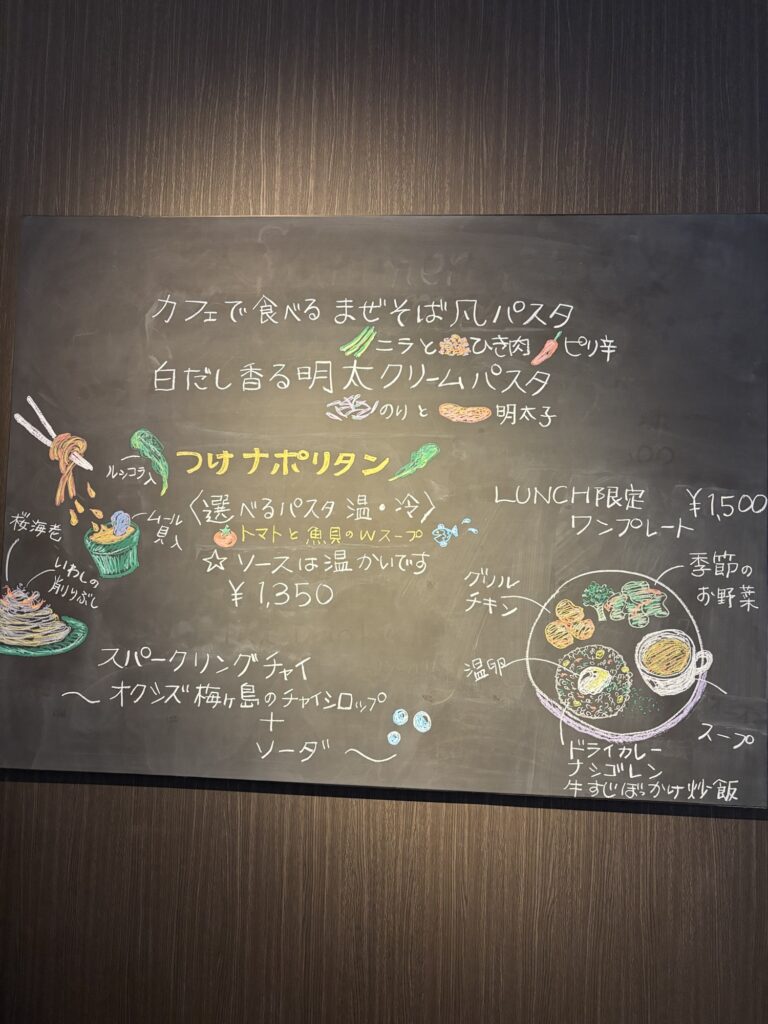 カフェで食べる まぜそば風パスタ
ニラと ひき肉 ピリ辛
白だし香る明太クリームパスタ
のりと 明太子
つけナポリタン
ルッコラ入
ムール貝入
桜海老
いわしの
削りぶし
〈選べるパスタ 温・冷〉
トマトと魚貝のWスープ
☆ ソースは温かいです
¥1,350
スパークリングチャイ
〜 オクシズ梅ヶ島のチャイシロップ
+
ソーダ 〜
LUNCH限定 ¥1,500
ワンプレート
季節の
お野菜
グリル
チキン
温卵
スープ
ドライカレー
ナシゴレン
牛すじぼっかけ炒飯